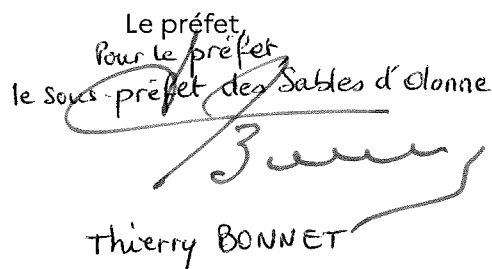 Le préfet,
Pour le préfet
le sous-préfet des Sables d'Olonne
Thierry BONNET